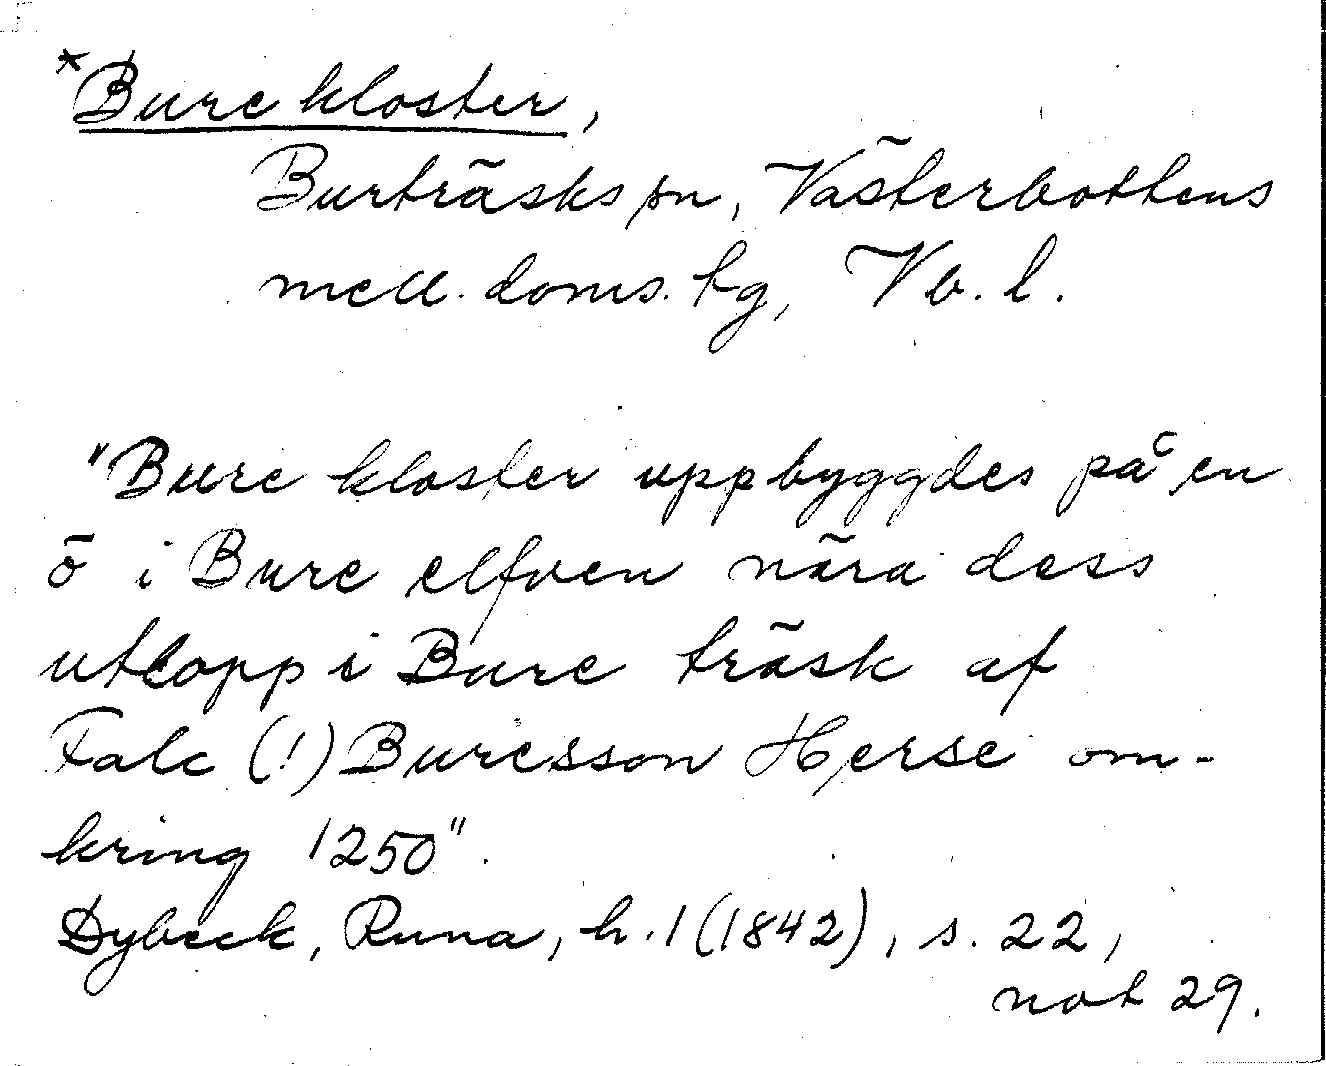 *Bure kloster,
Burträsks sn, Västerbottens
mell. doms. tg, Vb. l.
"Bure kloster uppbyggdes på en
ö i Bure elfven nära dess
utlopp i Bure träsk af
Falc (!) Buresson Herse om-
kring 1250".
Dybeck, Runa, h. 1 (1842), s. 22,
not 29.